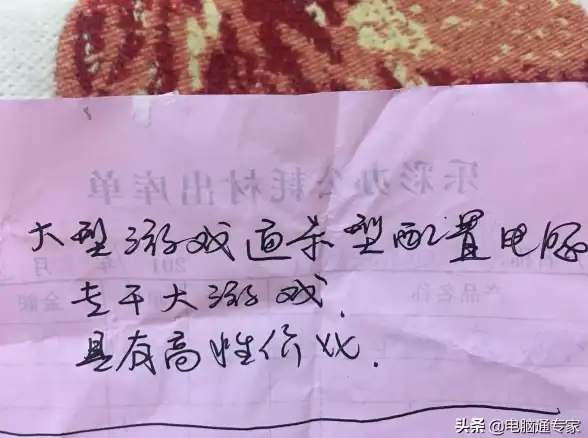 乐彩办公耗材出库单
大型游戏通杀型配置电脑
专干大游戏.
产品名称 金额
具有高性价比.
头条 @电脑通专家